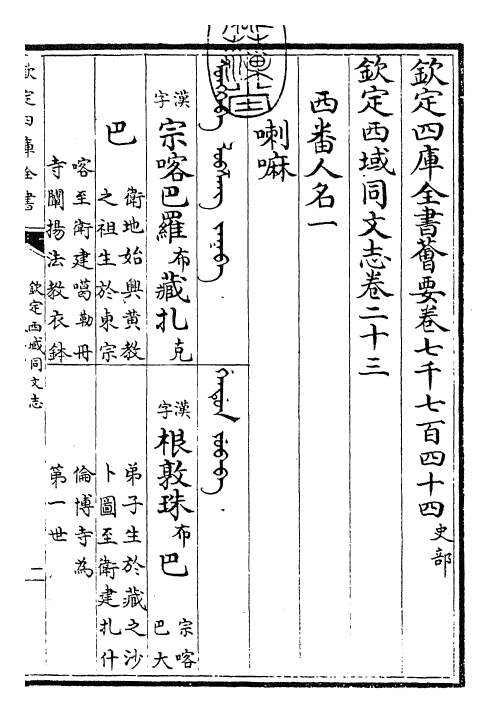 欽定四庫全書薈要卷七千七百四十四史部
欽定西域同文志卷二十三
西番人名一
喇嘛
漢字宗喀巴羅布藏扎克
巴
衛地始興黃教
之祖生於東宗
喀至衛建噶勒丹
寺闡揚法教衣鉢
漢字根敦珠布巴
宗喀
巴大
弟子生於藏之沙
卜圖至衛建扎什
倫博寺為
第一世
欽定四庫全書
欽定西域同文志
二